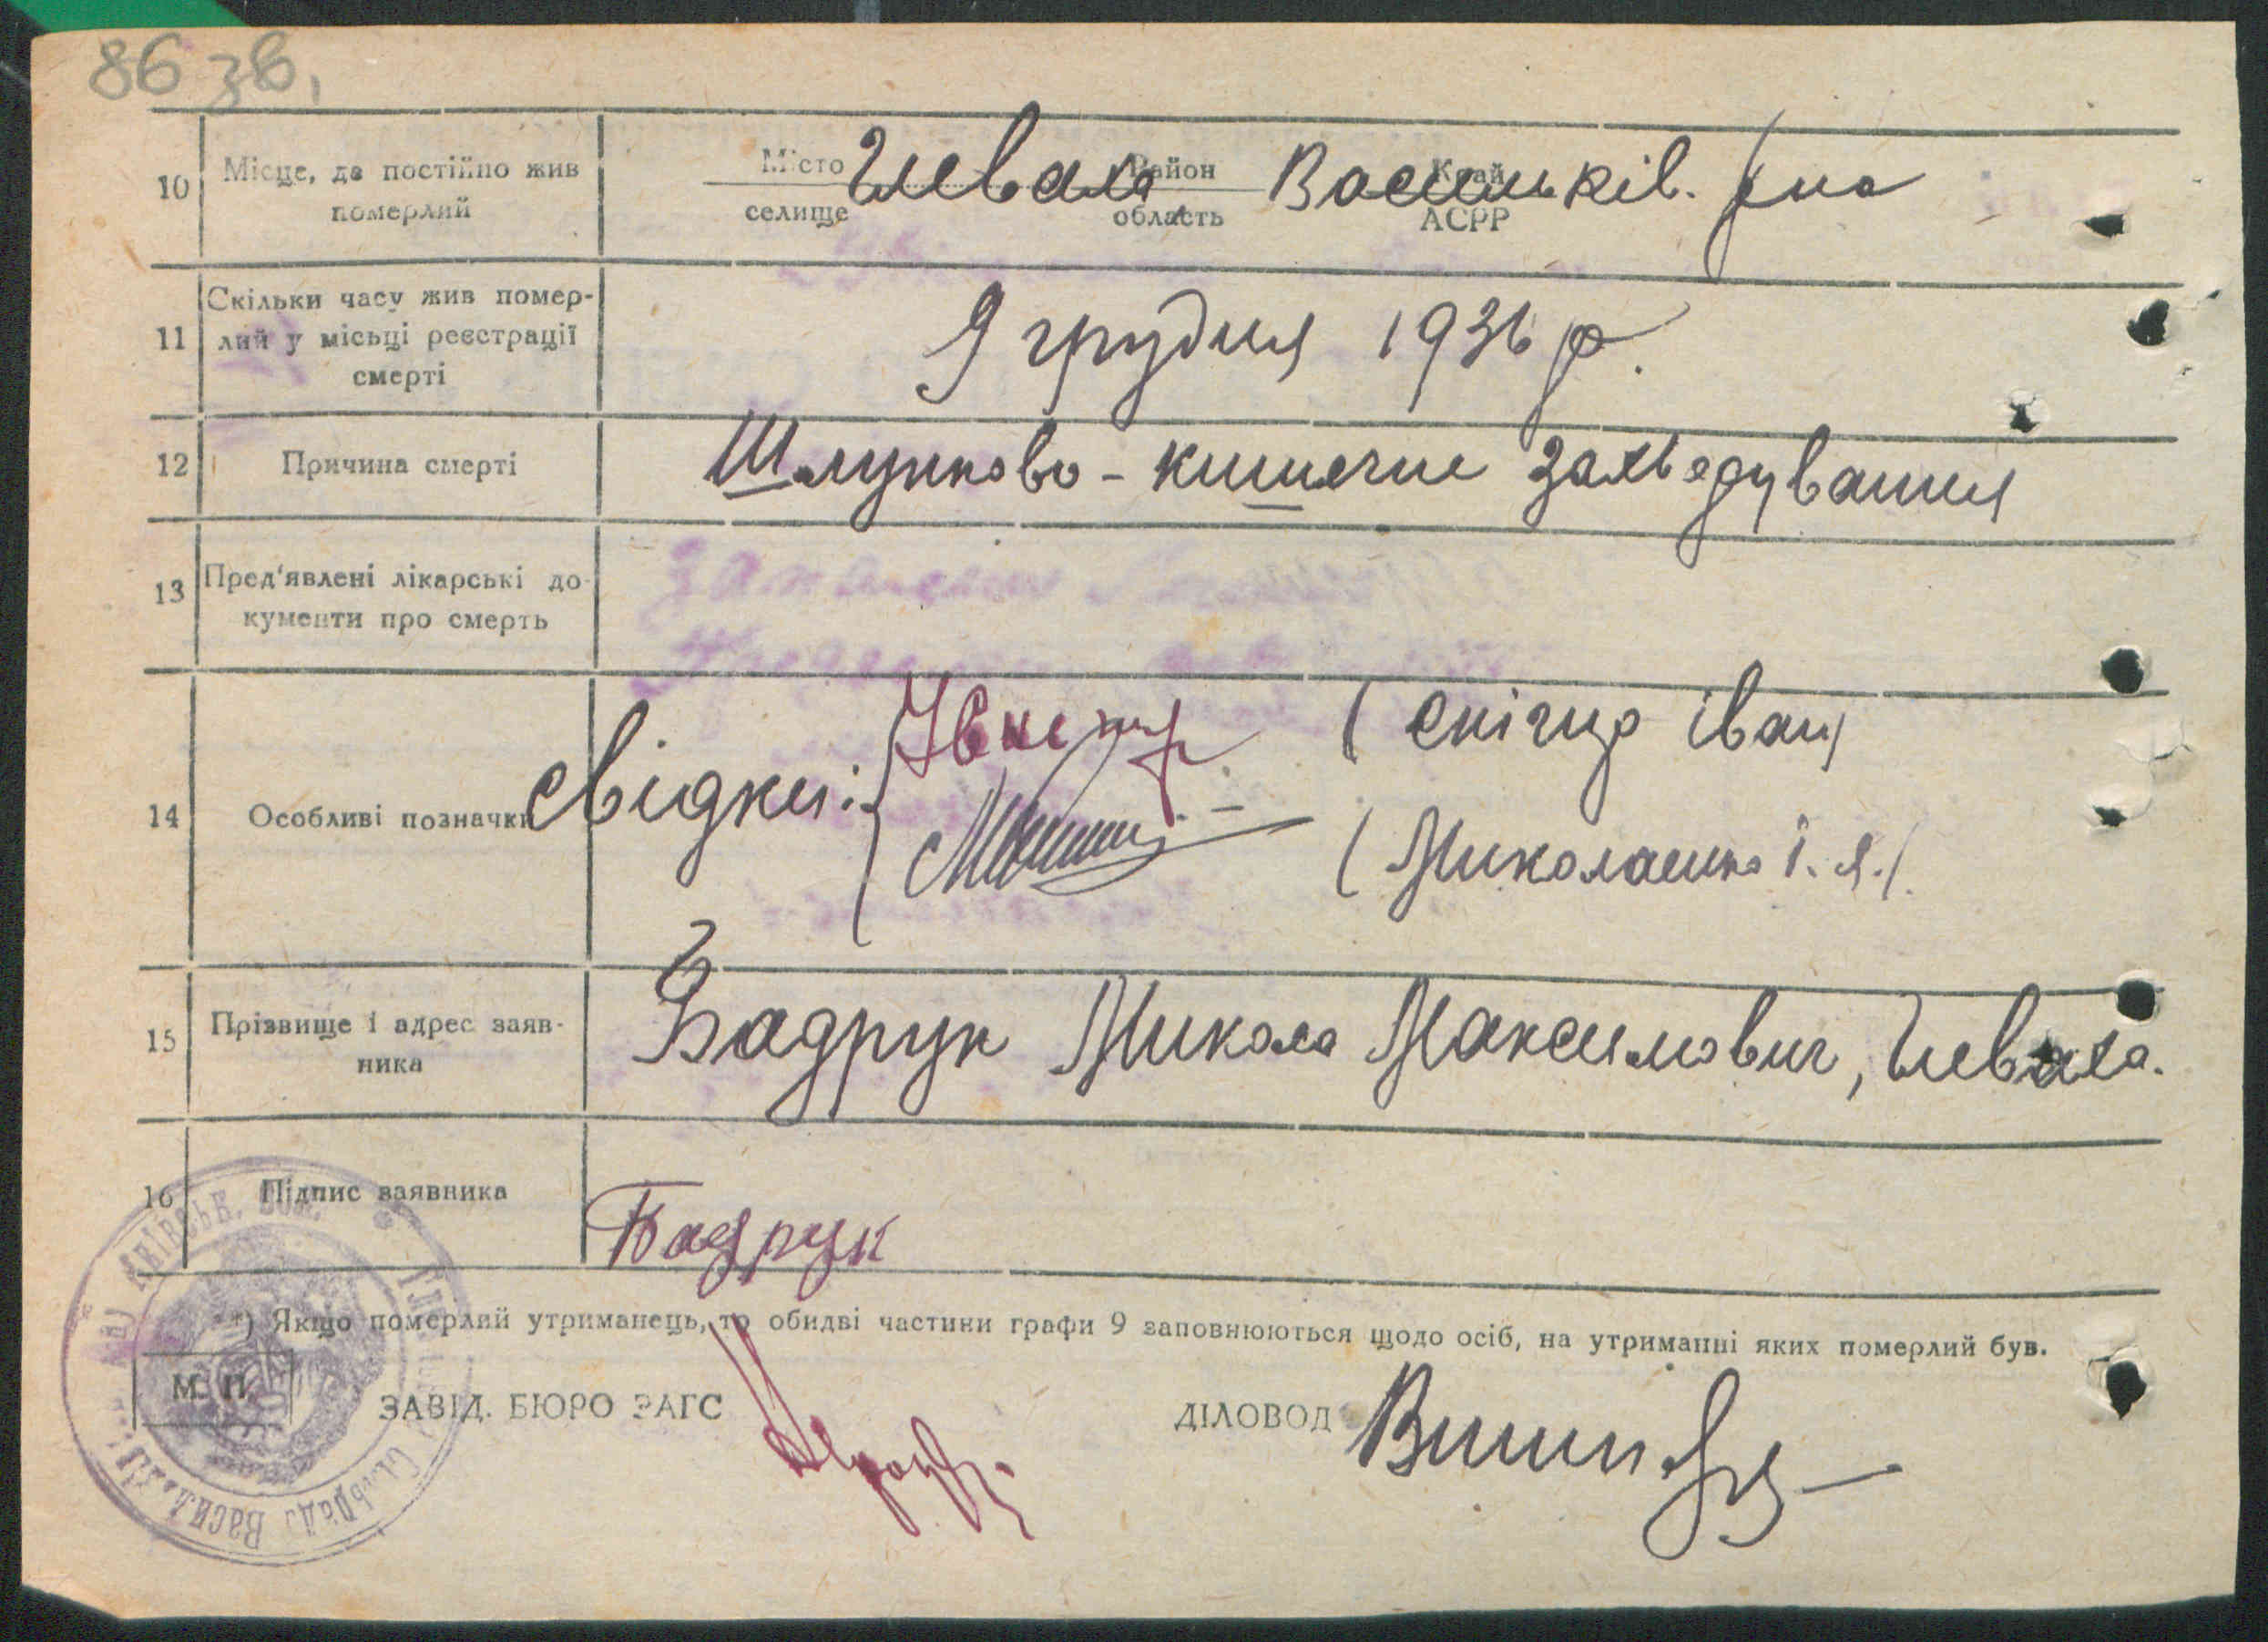 86 зв.
10 Місце, де постійно жив померлий
Місто селище Район область Край АСРР
Глеваха Васильків. р-на
11 Скільки часу жив помер-
лий у місьці реєстрації
смерті
9 грудня 1936 р.
12 Причина смерті
Шлунково-кишечне захворювання
13 Пред'явлені лікарські до-
кументи про смерть
14 Особливі позначки
свідки:
( Іван)
(Миколаенко І. Я.)
15 Прізвище і адрес заяв-
ника
Бадрук Микола Максимович, Глеваха.
16 Підпис заявника
Бадрук
*) Якщо померлий утриманець, то обидві частини графи 9 заповнюються щодо осіб, на утриманні яких померлий був.
М. П.
ЗАВІД. БЮРО ЗАГС
ДІЛОВОД